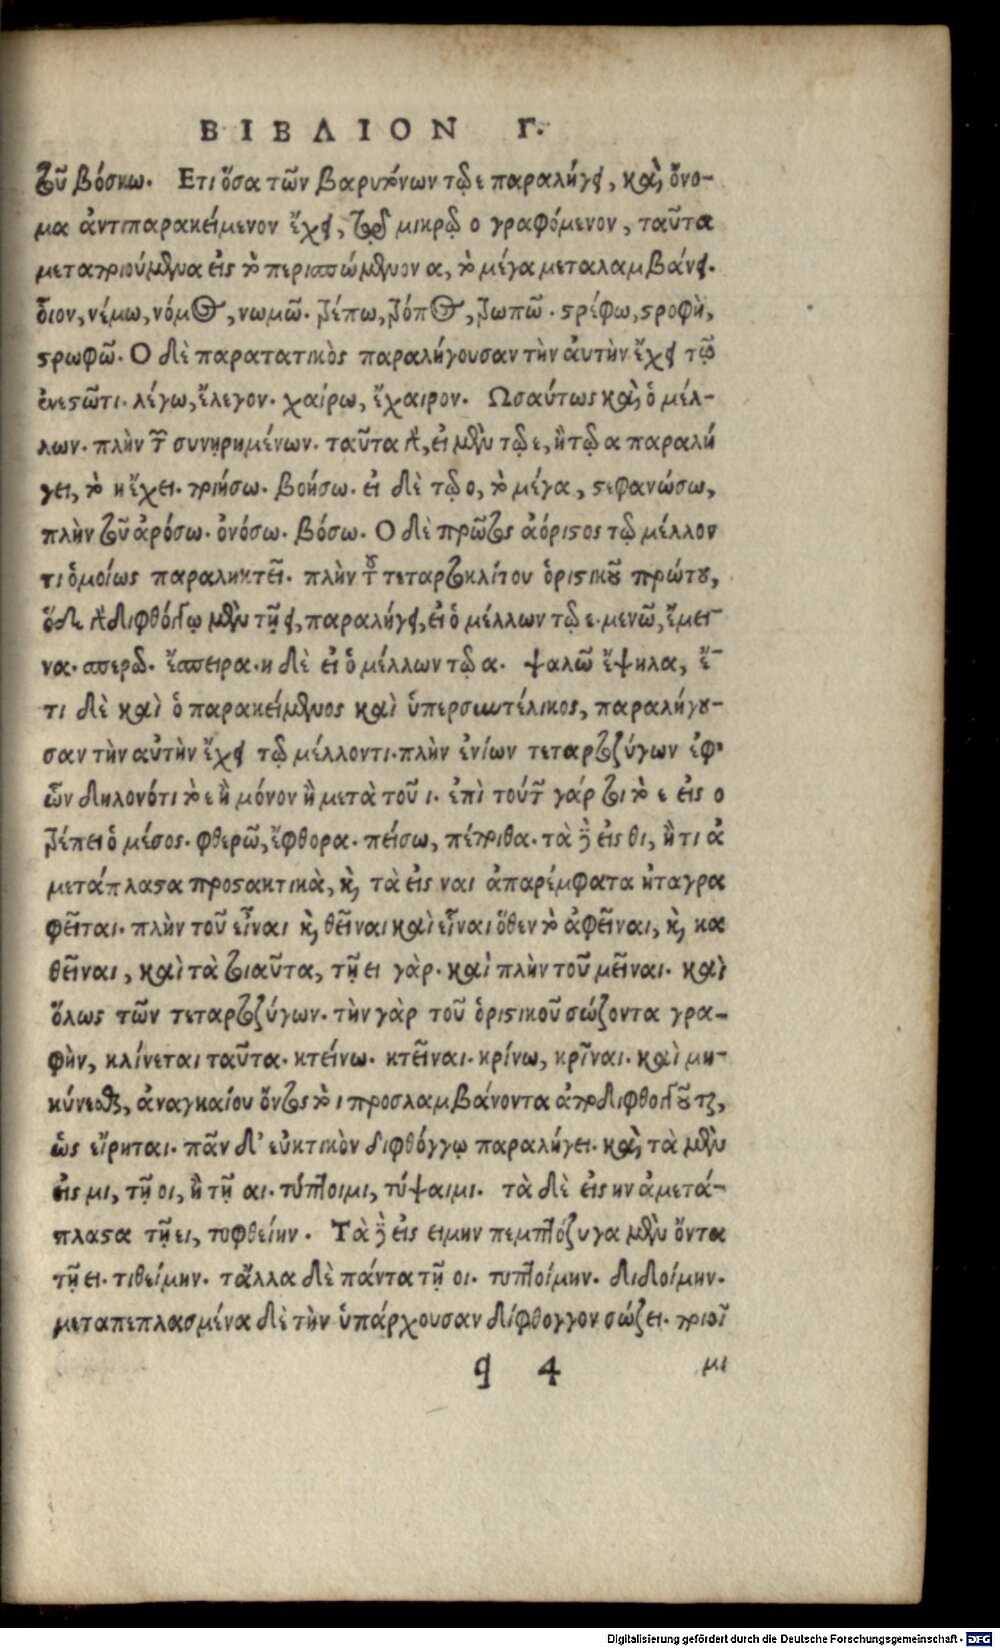 ΒΙΒΛΙΟΝ Γ.
τοῦ βόσκω. Ετι ὅσα τῶν βαρυτόνων τῷ ε παραλήγει, καὶ ὄνο-
μα ἀντιπαρακείμενον ἔχει, διὰ τοῦ μικροῦ ο γραφόμενον, ταῦτα
μετατιθέμενα εἰς τὸ περισπώμενον α, τὸ μέγα μεταλαμβάνει.
οἷον, νέμω, νόμος, νωμῶ. τρέπω, τρόπος, τρωπῶ. στρέφω, στροφὴ,
στρωφῶ. Ο δὲ παρατατικὸς παραλήγουσαν τὴν ἀυτὴν ἔχει τῷ
ἐνεστῶτι. λέγω, ἔλεγον. χαίρω, ἔχαιρον. Ωσαύτως καὶ ὁ μέλ-
λων. πλὴν τῶν συνῃρημένων. ταῦτα γὰρ, εἰ μὲν τῷ ε, ἢ τῷ α παραλή
γει, τὸ η ἔχει. ποιήσω. βοήσω. εἰ δὲ τῷ ο, τὸ μέγα, στεφανώσω,
πλὴν τοῦ ἀρόσω. ὀνόσω. βόσω. Ο δὲ πρῶτος ἀόριστος τῷ μέλλον
τι ὁμοίως παραληκτεῖ. πλὴν τοῦ τεταρτοκλίτου ὁριστικοῦ πρώτου,
ὅδε γὰρ διφθόγγῳ μὲν τῇ ει, παραλήγει, εἰ ὁ μέλλων τῷ ε. μενῶ, ἔμει-
να. σπερῶ. ἔσπειρα. η δὲ εἰ ὁ μέλλων τῷ α. ψαλῶ ἔψηλα, ἔ-
τι δὲ καὶ ὁ παρακείμενος καὶ ὑπερσυντέλικος, παραλήγου-
σαν τὴν αὐτὴν ἔχει τῷ μέλλοντι. πλὴν ἐνίων τεταρτοζύγων ἐφ'
ὧν δηλονότι τὸ ε ἢ μόνον ἢ μετὰ τοῦ ι. ἐπὶ τούτων γάρ τοι τὸ ε εἰς ο
τρέπει ὁ μέσος. φθερῶ, ἔφθορα. πείσω, πέποιθα. τὰ δὲ εἰς θι, ἤτι ἀ
μετάπλαστα προστακτικὰ, καὶ τὰ εἰς ναι ἀπαρέμφατα ητα γρα
φεῖται. πλὴν τοῦ εἶναι καὶ θεῖναι καὶ εἷναι ὅθεν τὸ ἀφεῖναι, καὶ κα
θεῖναι, καὶ τὰ τοιαῦτα, τῇ ει γὰρ. καὶ πλὴν τοῦ μεῖναι. καὶ
ὅλως τῶν τεταρτοζύγων. τὴν γὰρ τοῦ ὁριστικοῦ σώζοντα γρα-
φὴν, κλίνεται ταῦτα. κτείνω. κτεῖναι. κρίνω, κρῖναι. καὶ μη-
κύνεσθαι, ἀναγκαίου ὄντος τὸ ι προσλαμβάνοντα ἀποδιφθογγοῦται,
ὡς εἴρηται. πᾶν δ' εὐκτικὸν διφθόγγῳ παραλήγει. καὶ τὰ μὲν
εἰς μι, τῇ οι, ἢ τῇ αι. τύπτοιμι, τύψαιμι. τὰ δὲ εἰς ην ἀμετά-
πλαστα τῇ ει, τυφθείην. Τὰ δὲ εἰς ειμην πεμπτόζυγα μὲν ὄντα
τῇ ει. τιθείμην. τἆλλα δὲ πάντα τῇ οι. τυπτοίμην. διδοίμην.
μεταπεπλασμένα δὲ τὴν ὑπάρχουσαν δίφθογγον σώζει. ποιοῖ
q 4 μι
Digitalisierung gefördert durch die Deutsche Forschungsgemeinschaft - DFG